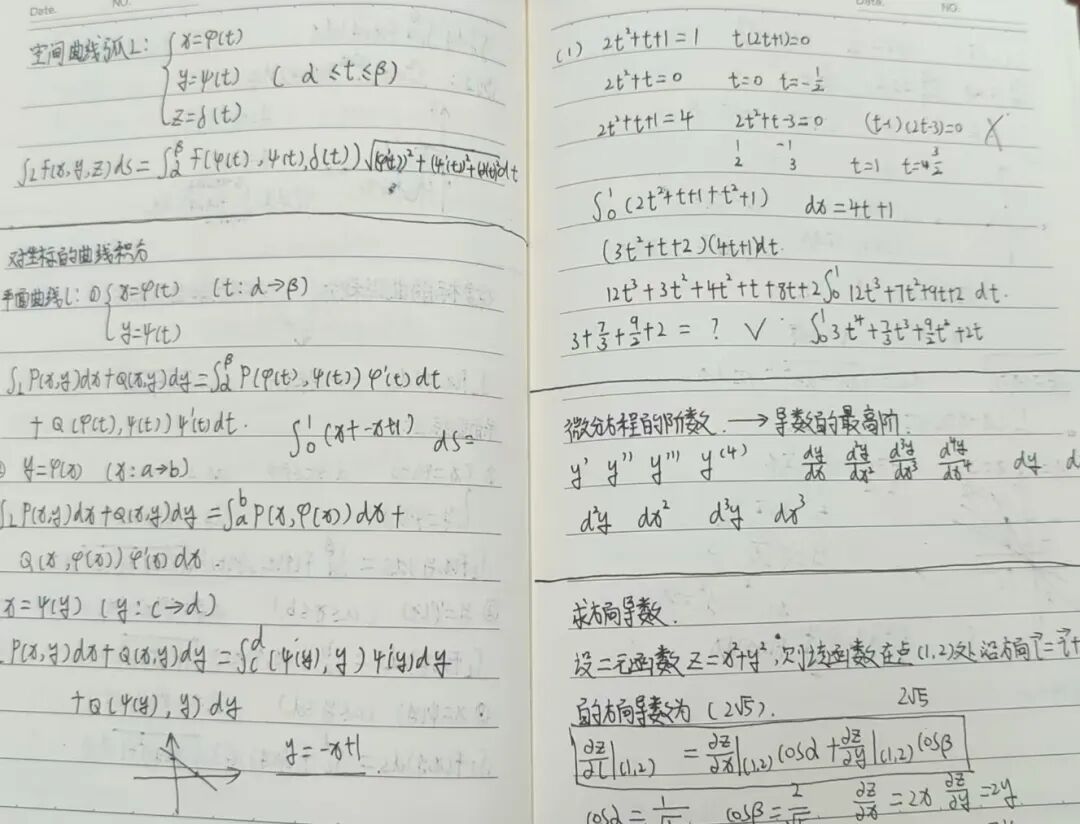 Date. NO.
空间曲线弧L: { x=φ(t)
y=ψ(t) ( α ≤t ≤β)
z=δ(t)
∫L f(x,y,z)ds = ∫α^β f(φ(t),ψ(t),δ(t)) √(φ'(t))²+(ψ'(t))²+(δ'(t))² dt
对坐标的曲线积分
平面曲线L: ① { x=φ(t) (t: α→β)
y=ψ(t)
∫L P(x,y)dx+Q(x,y)dy=∫α^β P(φ(t),ψ(t))φ'(t)dt
+Q(φ(t),ψ(t))ψ'(t)dt. ∫₀¹(x+-x+1) ds=
② y=φ(x) (x:a→b)
∫L P(x,y)dx+Q(x,y)dy=∫a^b P(x,φ(x))dx+
Q(x,φ(x))φ'(x)dx.
x=ψ(y) (y:c→d)
P(x,y)dx+Q(x,y)dy=∫c^d (ψ(y),y)ψ'(y)dy
+Q(ψ(y),y)dy
y=-x+1
Date. NO.
(1) 2t²+t+1=1 t(2t+1)=0
2t²+t=0 t=0 t=-1/2
2t²+t+1=4 2t²+t-3=0 (t-1)(2t-3)=0 ×
1 -1
2 3 t=1 t=3/2
∫₀¹(2t²+t+1+t²+1) dx=4t+1
(3t²+t+2)(4t+1)dt.
12t³+3t²+4t²+t+8t+2 ∫₀¹ 12t³+7t²+9t+2 dt.
3+7/3+9/2+2=? √ ∫₀¹ 3t⁴+7/3t³+9/2t²+2t
微分方程的阶数. → 导数的最高阶.
y' y'' y''' y⁽⁴⁾ dy/dx d²y/dx² d³y/dx³ d⁴y/dx⁴ dy d
d²y dx² d³y dx³
求方向导数.
设二元函数z=x²+y²,则该函数在点(1,2)处沿方向l⃗=i⃗+
的方向导数为(2√5). 2√5
∂z/∂l|(1,2) = ∂z/∂x|(1,2) cosα+∂z/∂y|(1,2) cosβ
cosα=1/√ cosβ=2/√ ∂z/∂x=2x ∂z/∂y=2y